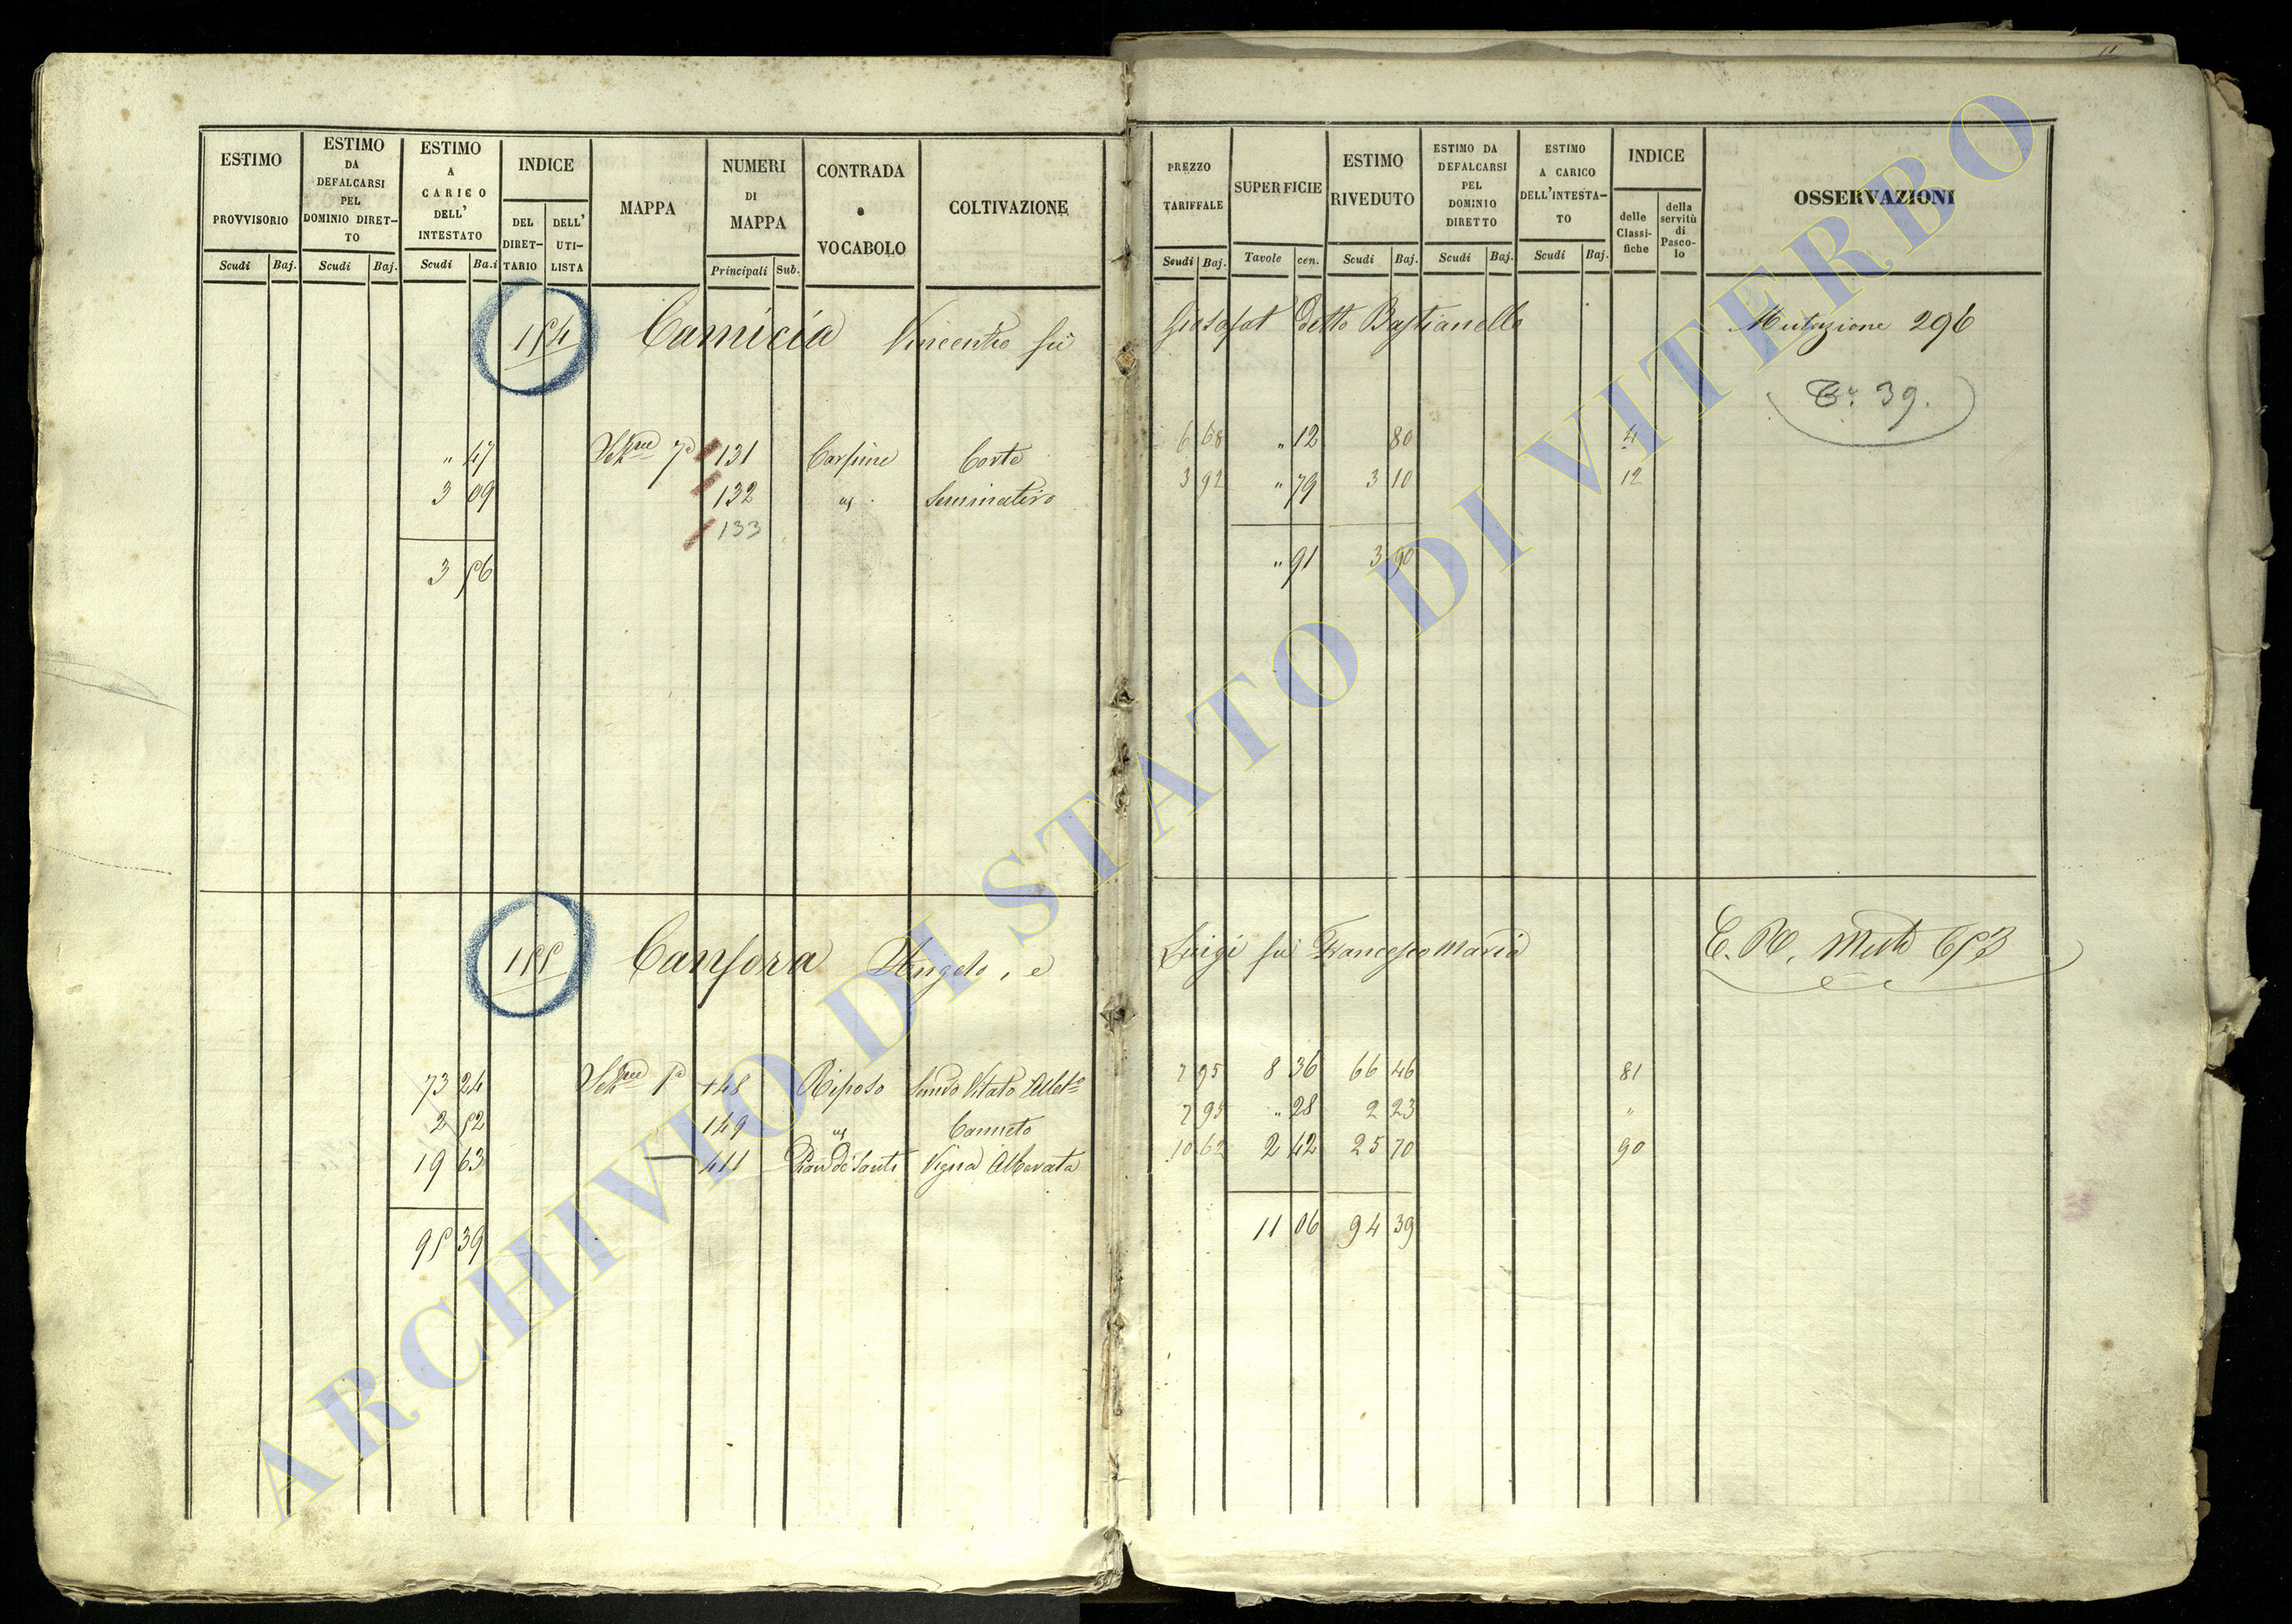 ESTIMO PROVVISORIO Scudi Baj. ESTIMO DA DEFALCARSI PEL DOMINIO DIRET-TO Scudi Baj. ESTIMO A CARICO DELL' INTESTATO Scudi Ba.i INDICE DEL DIRET-TARIO DELL' UTI-LISTA MAPPA NUMERI DI MAPPA Principali Sub. CONTRADA o VOCABOLO COLTIVAZIONE
PREZZO TARIFFALE Scudi Baj. SUPERFICIE Tavole cen. ESTIMO RIVEDUTO Scudi Baj. ESTIMO DA DEFALCARSI PEL DOMINIO DIRETTO Scudi Baj. ESTIMO A CARICO DELL'INTESTA-TO Scudi Baj. INDICE delle Classi-fiche della servitù di Pasco-lo OSSERVAZIONI
154 Camicia Vincenzo fu Giosafat detto Bastianello Mutazione 296
39.
" 47 Sezne 7a 131 Corte 6 68 " 12 80 4
3 09 132 " Seminativo 3 92 " 79 3 10 12
133
3 56 " 91 3 90
155 Canfora Angelo, e Luigi fu Francesco Maria
73 24 Sezne 148 Riposo Semvo Vitato Albto 7 95 8 36 66 46 81
2 52 149 " Canneto 7 95 " 28 2 23 "
19 63 411 Vigna Alberata 10 62 2 42 25 70 90
95 39 11 06 94 39
ARCHIVIO DI STATO DI VITERBO